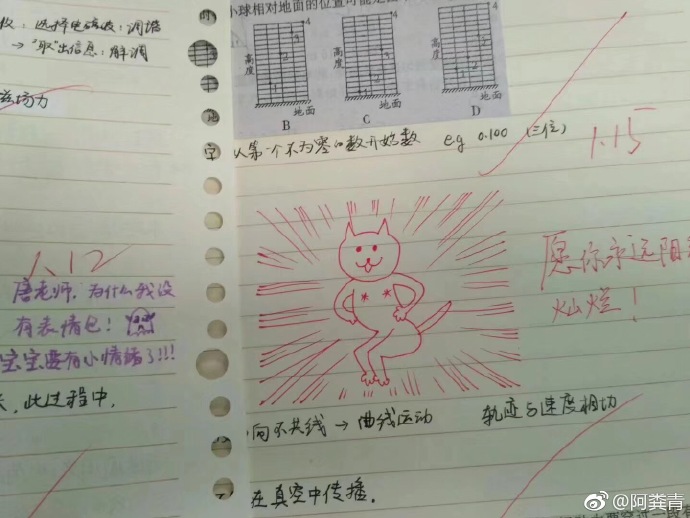 收：选择电磁波：调谐
→"取"出信息：解调
磁场力
1.12
唐老师，为什么我没
有表情包！
宝宝要有小情绪了!!!
此过程中，
小球相对地面的位置可能是
4
3
2
1
高度
地面
B
4
3
2
1
高度
地面
C
4
3
2
1
高度
地面
D
从第一个不为零的数开始数 e.g 0.100 (三位)
1.15
愿你永远阳
灿烂！
向不共线 → 曲线运动 轨迹与速度相切
在真空中传播．
@阿粪青